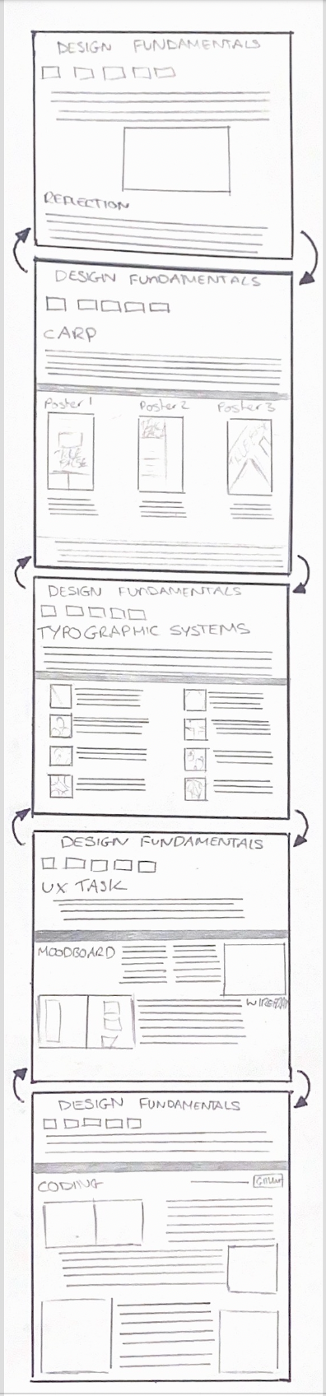 DESIGN FUNDAMENTALS
REFLECTION
DESIGN FUNDAMENTALS
CARP
Poster 1 Poster 2 Poster 3
DESIGN FUNDAMENTALS
TYPOGRAPHIC SYSTEMS
DESIGN FUNDAMENTALS
UX TASK
MOODBOARD
DESIGN FUNDAMENTALS
CODING